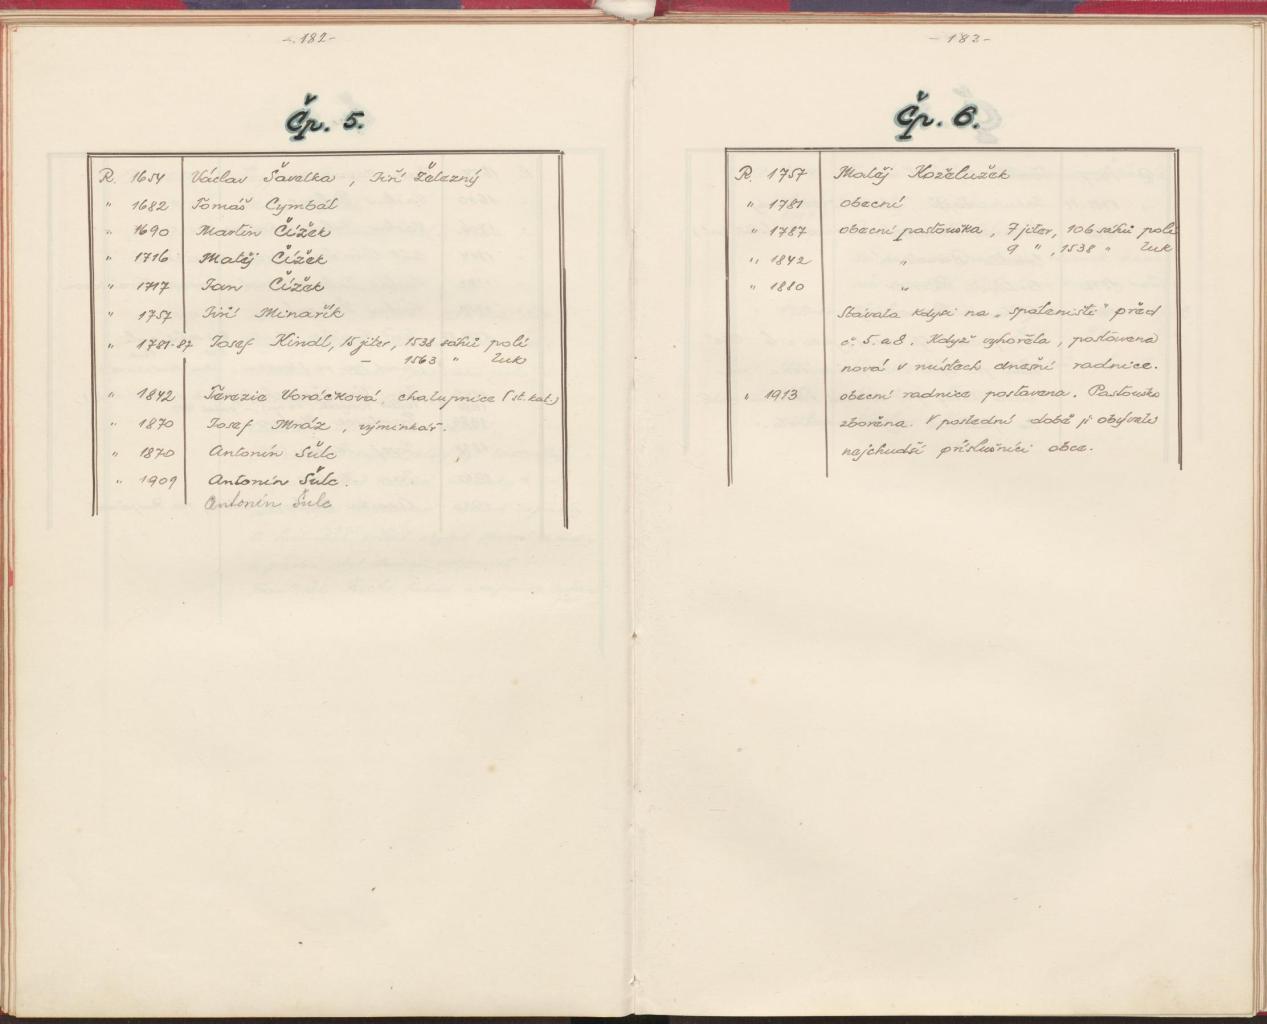 - 182 -
Čp. 5.
R. 1654 Václav Šavelka, Jiří Železný
" 1682 Tomáš Cymbál
" 1690 Martin Čížek
" 1716 Matěj Čížek
" 1717 Jan Čížek
" 1757 Jiří Minařík
" 1781-87 Josef Kindl, 15 jiter, 1538 sáhů polí
— 1563 " luk
" 1842 Terezie Voráčková, chalupnice (st. kat.)
" 1870 Josef Mráz, výminkář.
" 1870 Antonín Šulc
" 1909 Antonín Šulc.
Antonín Šulc
- 183 -
Čp. 6.
R. 1757 Matěj Koželužek
" 1781 obecní
" 1787 obecní pastouška, 7 jiter, 106 sáhů polí
9 ", 1538 " luk
" 1842 "
" 1880 "
Stávala kdysi na „spáleništi" před
č. 5. a 8. Když vyhořela, postavena
nová v místech dnešní radnice.
" 1913 obecní radnice postavena. Pastouška
zbořena. V poslední době ji obývali
nejchudší příslušníci obce.